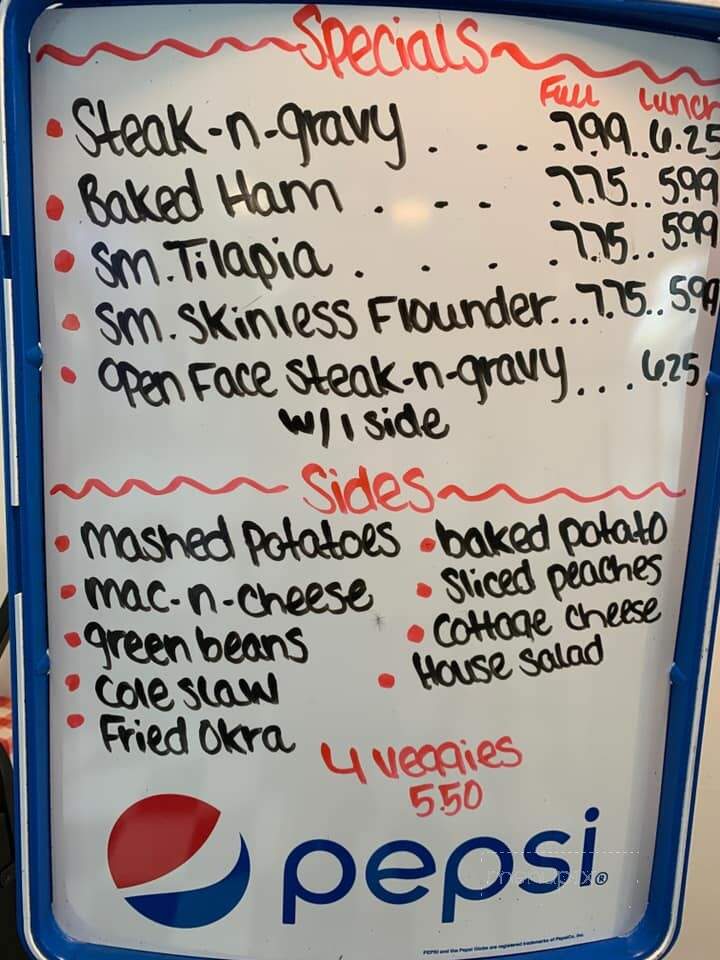 Specials
Full Lunch
• Steak-n-gravy . . . .799..6.25
• Baked Ham . . . .7.75..599
• Sm. Tilapia . . . .775..599
• Sm. Skinless Flounder...7.75..599
• Open Face Steak-n-gravy...6.25
w/1 side
Sides
• Mashed Potatoes • baked potato
• Mac-n-cheese • Sliced peaches
• green beans • Cottage Cheese
• Coleslaw • House Salad
• Fried Okra
4 veggies
5.50
pepsi®
menupix
PEPSI and the Pepsi Globe are registered trademarks of PepsiCo, Inc.